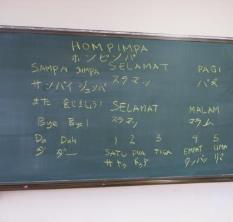 HOMPIMPA
ホンピンパ
SAMPAI JUMPA SELAMAT PAGI
サンパイ ジュンパ スラマッ パギ
また 会いましょう! SELAMAT MALAM
Bye Bye! スラマッ マラム
Da Dah 1 2 3 4 5
ダ ダー SATU DUA TIGA EMPAT LIMA
サトゥ ドゥア